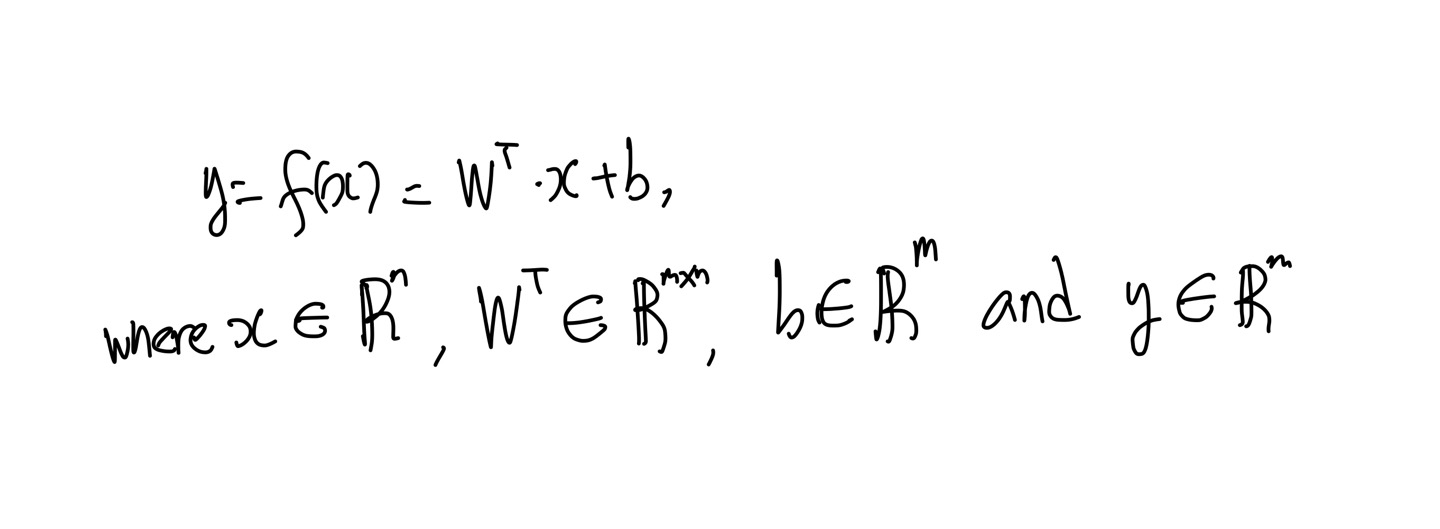 y = f(x) = Wᵀ · x + b,
where x ∈ ℝⁿ, Wᵀ ∈ ℝᵐˣⁿ, b ∈ ℝᵐ and y ∈ ℝᵐ